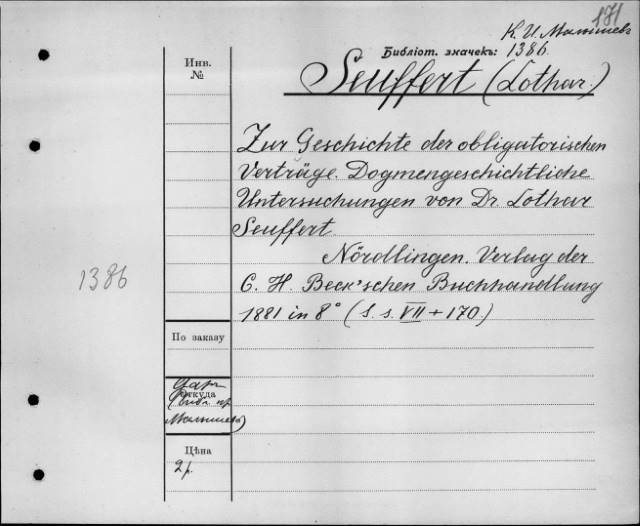 171
К. И. Малышевъ
Библіот. значекъ: 1386.
Seuffert (Lothar.)
Инв.
№
Zur Geschichte der obligatorischen
Verträge. Dogmengeschichtliche
Untersuchungen von Dr. Lothar
Seuffert.
Nördlingen. Verlag der
C. H. Beck'schen Buchhandlung
1881 in 8° (S. s. VII + 170.)
1386
По заказу
Откуда
Малышева)
Цѣна
2 р.